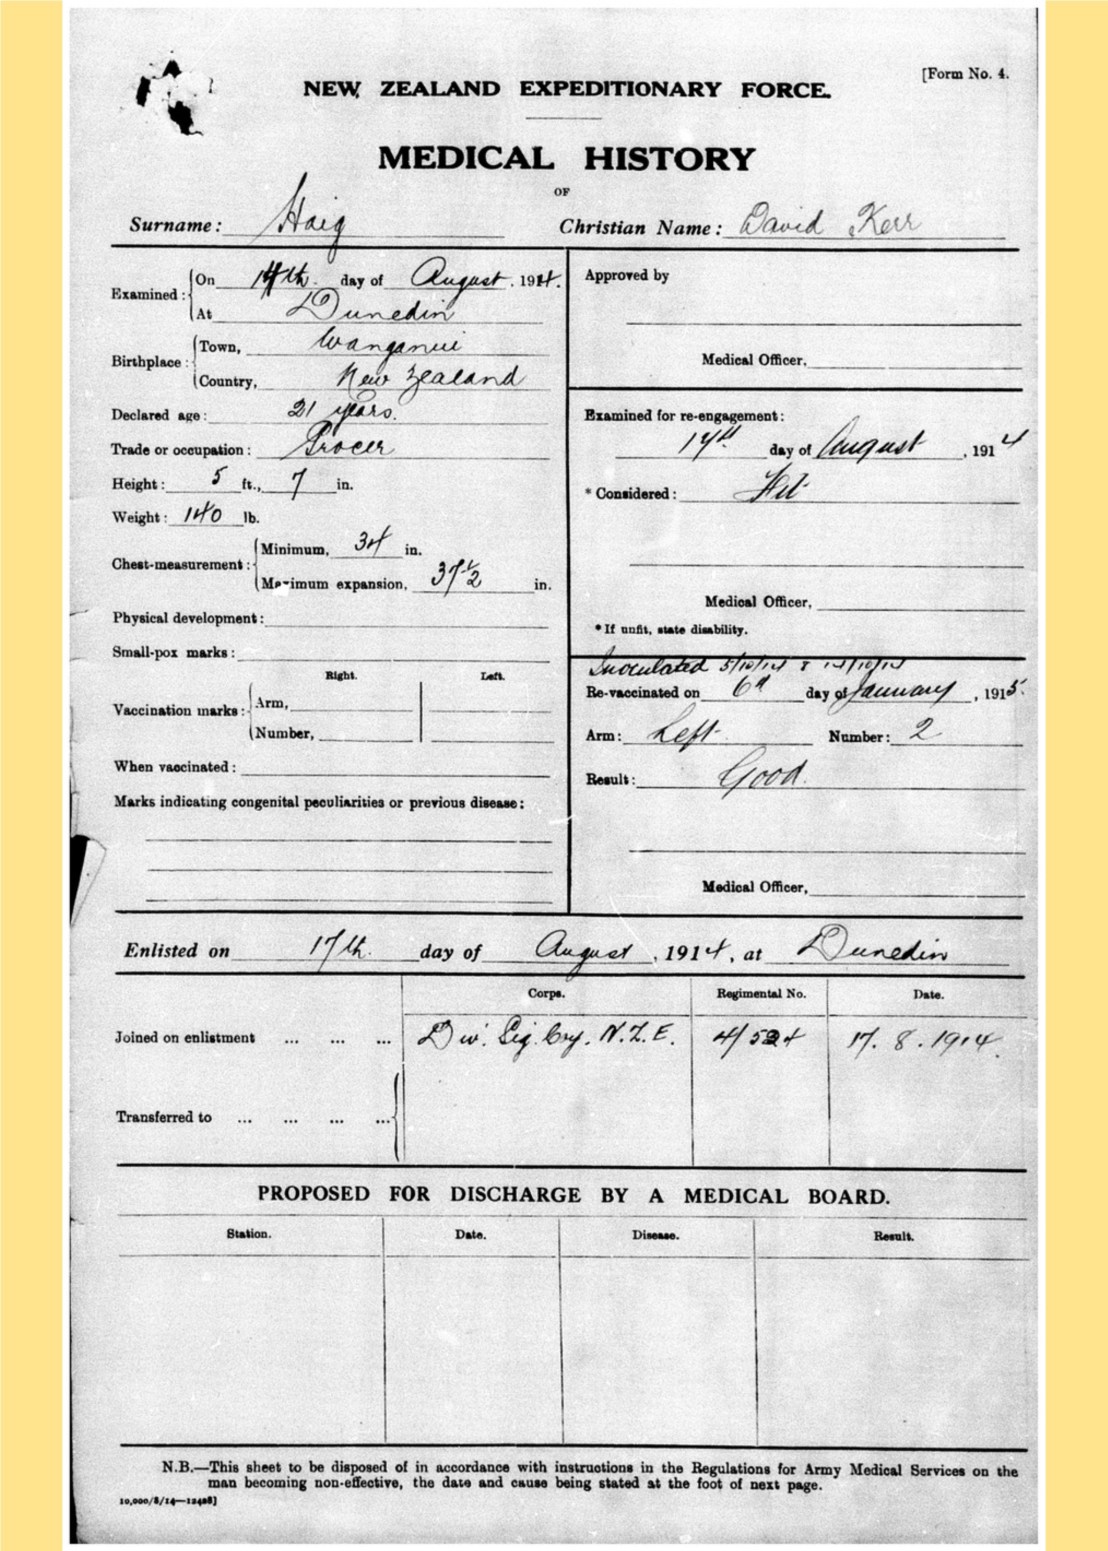 [Form No. 4.
NEW ZEALAND EXPEDITIONARY FORCE.
MEDICAL HISTORY
OF
Surname: Haig Christian Name: David Kerr
Examined: On day of August, 1914.
At Dunedin
Birthplace: Town, Wanganui
Country, New Zealand
Declared age: 21 years.
Trade or occupation: Grocer
Height: 5 ft., 7 in.
Weight: 140 lb.
Chest-measurement: Minimum, 34 in.
Maximum expansion, 37½ in.
Physical development:
Small-pox marks:
Right. Left.
Vaccination marks: Arm,
Number,
When vaccinated:
Marks indicating congenital peculiarities or previous disease:
Approved by
Medical Officer,
Examined for re-engagement:
17th day of August, 1914
* Considered: Fit
Medical Officer,
* If unfit, state disability.
Inoculated 5/10/14 & 14/10/14
Re-vaccinated on 6th day of January, 1915.
Arm: Left Number: 2
Result: Good.
Medical Officer,
Enlisted on 17th. day of August, 1914, at Dunedin
Corps. Regimental No. Date.
Joined on enlistment ... ... ... Div. Sig. Coy. N.Z.E. 4/524 17.8.1914.
Transferred to ... ... ... ...
PROPOSED FOR DISCHARGE BY A MEDICAL BOARD.
Station. Date. Disease. Result.
N.B.—This sheet to be disposed of in accordance with instructions in the Regulations for Army Medical Services on the
man becoming non-effective, the date and cause being stated at the foot of next page.
10,000/8/14—12408]